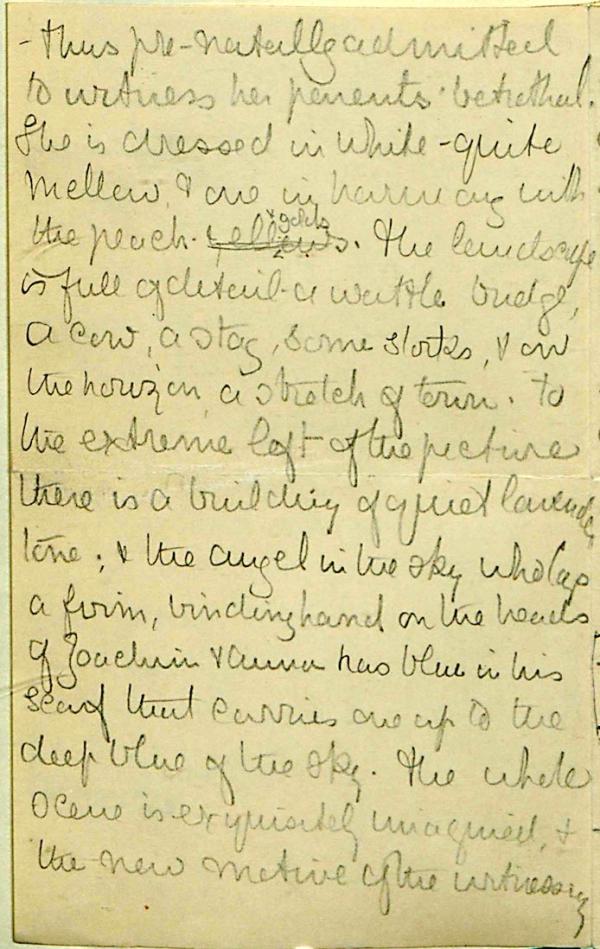 - thus pre-natally admitted
to witness her parents' betrothal.
She is dressed in white - quite
mellow, & one in harmony with
the peach - yellows & golds. The landscape
is full of detail - a wattle bridge,
a cow, a stag, some storks, & on
the horizon a stretch of town. To
the extreme left of the picture
there is a building of quiet lavender
tone; & the angel in the sky who lays
a firm, binding hand on the heads
of Joachim & Anna has blue in his
scarf that carries one up to the
deep blue of the sky. The whole
scene is exquisitely imagined, &
the new motive of the witnessing